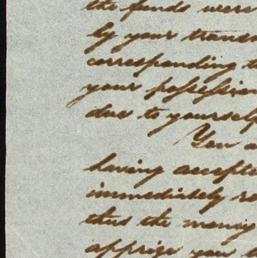 the funds were
by your trans
corresponding t
your possession
due to yourself
You a
having accepte
immediately re
thus the money
apprize you